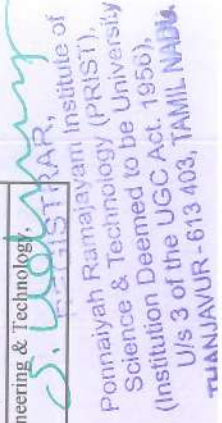 neering & Technology,
REGISTRAR,
Ponnaiyah Ramajayam Institute of
Science & Technology (PRIST),
(Institution Deemed to be University
U/s 3 of the UGC Act. 1956),
THANJAVUR - 613 403, TAMIL NADU.